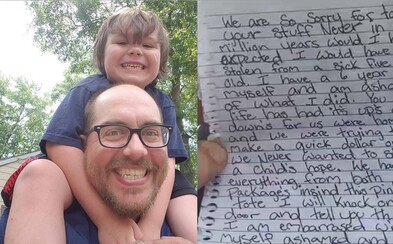 We are so sorry for ta
your stuff Never in
million years would I h
expected I would have
stolen from a sick five
old I have a 6 year
myself and am asha
of what I did. You
life has had its ups
down for us were hom
and we were trying
make a quick dollar o
we Never wanted to s
a child's hope. We ho
everything from both
packages insind this Pin
Tote I will knock on
door and tell you th
I am embarrased wi
myself ashamed and